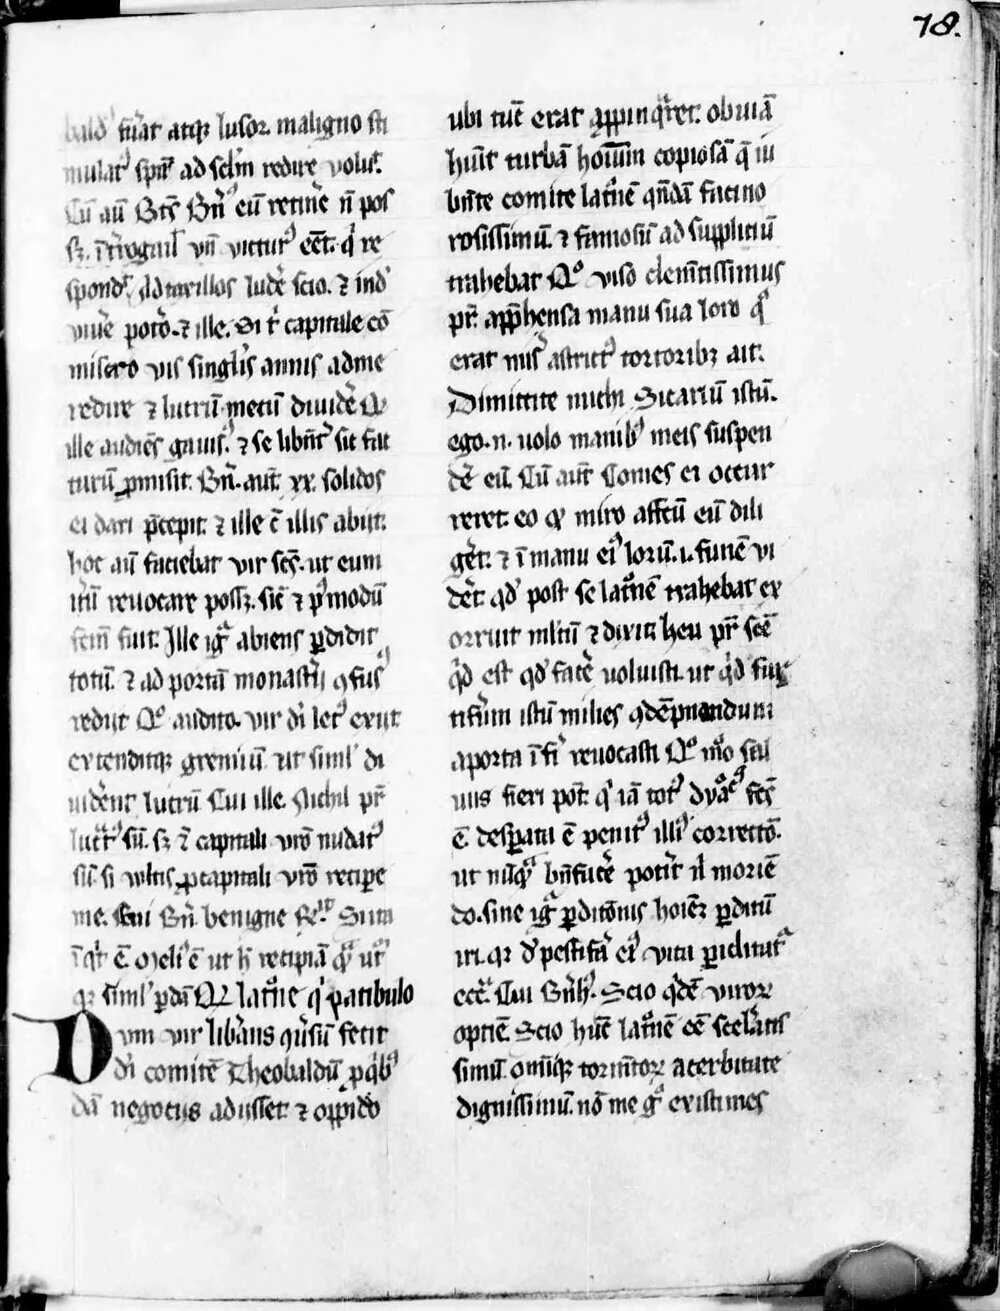 78.
bald' fu'at atq; lusor. maligno sti
mulat' sp'u ad sc'lm redire voluit.
Cū aū Bt's B'n' eū retine' n̄ pos
s; īt'rogauit vn̄ victur' eēt. q' re
spond'. Ad taxillos lude' scio. ⁊ ind'
viue' pote'o. ⁊ ille. Si t' capitale cō
misero vis singlis annis ad me
redire ⁊ lucrū mecū diuide' Qd
ille audiēs gauis' ⁊ se libēt' sic fac
turū p̱misit. B'n. aut̄ xx. solidos
ei dari p̄cepit. ⁊ ille c̄ illis abijt.
hoc aū faciebat vir sc̄s. ut eum
it'ū reuocare poss;. sic ⁊ p' modū
fc̄m fuit. Ille ig' abiens p̱didit
totū. ⁊ ad portā monast'ij ꝯfus'
redijt Qo audito. vir di let' exijt
extenditq; gremiū ut simul di
uident lucrū Cui ille. Nichil pr̄
lucrat' sū. s; ⁊ capitali vr̄o nudat'
sū. si vultis p̱ capitali vr̄o recipe
me. Cui B'n benigne Si ita
ē. Meli' ē ut h̄ recipiā q' ut'
q; simul p̱dā De lat'ne q' patibulo
Dum vir lib'aīs q'sū fecit
di comitē Theobaldū p̱ q'b'
dā negotijs adisset. ⁊ oppido
ubi tūc erat app̱inq'ret. obuiā
hūit turbā hoīm copiosā q̄ iu
bēte comite lat'nē q'ndā facino
rosissimū. ⁊ famosū ad suppliciū
trahebat Qo viso clemētissimus
pr̄. app̱hensa manu sua loro q'
erat mis' astrict' tortorib; ait.
Dimittite michi Sicariū istū.
ego. n. uolo manib' meis suspen
de' eū. Cū aut̄ Comes ei occur
reret. eo q' miro affc̄u eū dili
g'et. ⁊ ī manu ei' lorū. i. funē vi
de't. qd' post se lat'nē trahebat ex
orruit m'ltū ⁊ dixit heu pr̄ sc̄e
q'd est qd' face' uoluisti. ut q'd fur
cif'um istū milies ꝯdēp̱nandum
a porta īf'i reuocasti Qo mo sal
uus fieri pot̄. q' iā tot' dyabol' fc̄s
ē. desp̱ata ē penit' illi' correctō.
ut nu'q' bn̄face' pot'it n̄ moriē
do. sine ig' p̱ditōnis hoīem p̱ditū
iri. q; d' pestif'a ei' vita p̱iclitat'
ecc'a Cui B'n h'. Scio q'dē viror;
optīe. Scio hūc lat'nē eē scel'atis
simū. omīq; tormētor; acerbitate
dignissimū. nō me g' existimes